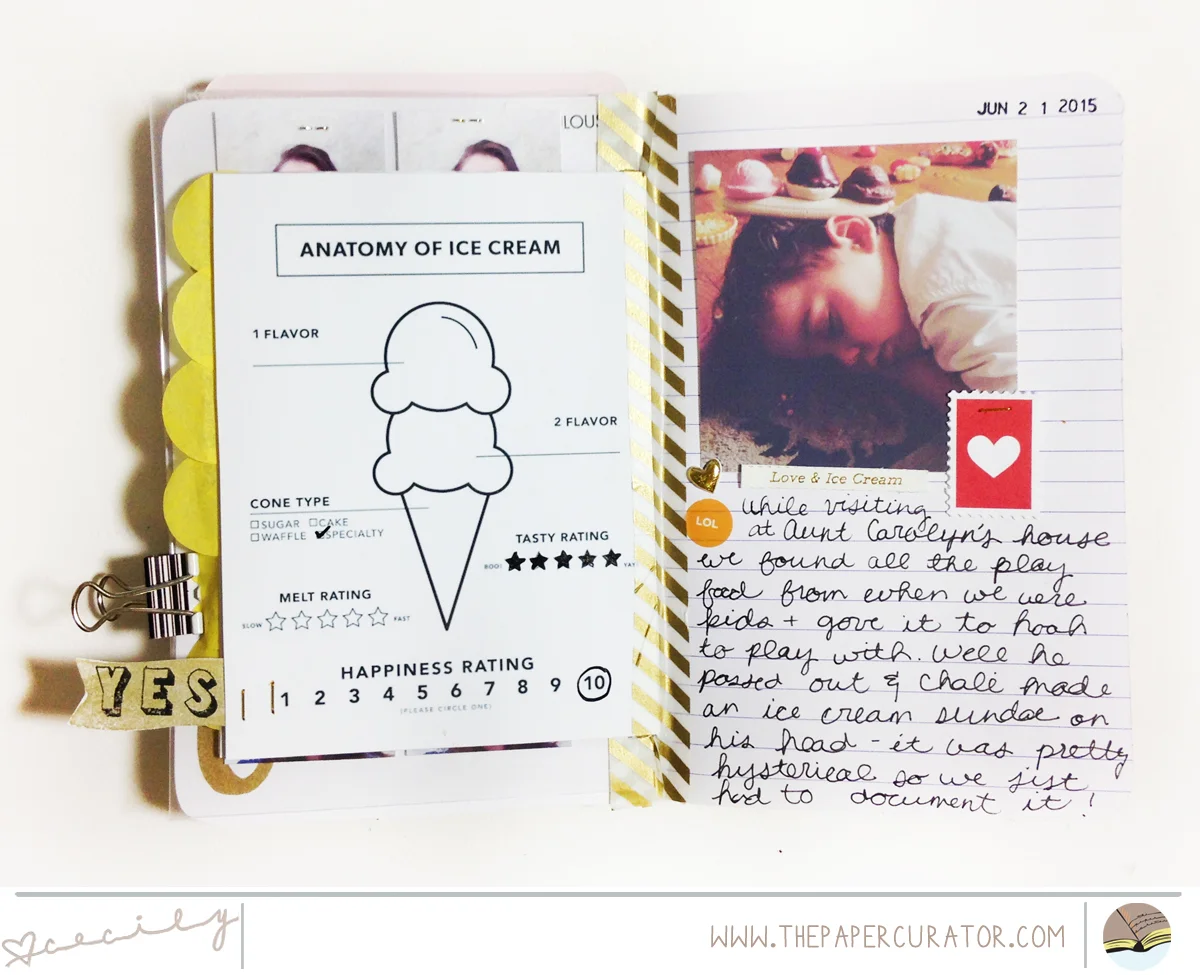 LOUS
ANATOMY OF ICE CREAM
1 FLAVOR
2 FLAVOR
CONE TYPE
SUGAR CAKE
WAFFLE SPECIALTY
TASTY RATING
BOO! YAY
MELT RATING
SLOW FAST
HAPPINESS RATING
1 2 3 4 5 6 7 8 9 10
(PLEASE CIRCLE ONE)
YES
JUN 2 1 2015
Love & Ice Cream
LOL
While visiting
at Aunt Carolyn's house
we found all the play
food from when we were
kids + gave it to Noah
to play with. Well he
passed out & Chali made
an ice cream sundae on
his head - it was pretty
hysterical so we just
had to document it!
cecily
WWW.THEPAPERCURATOR.COM